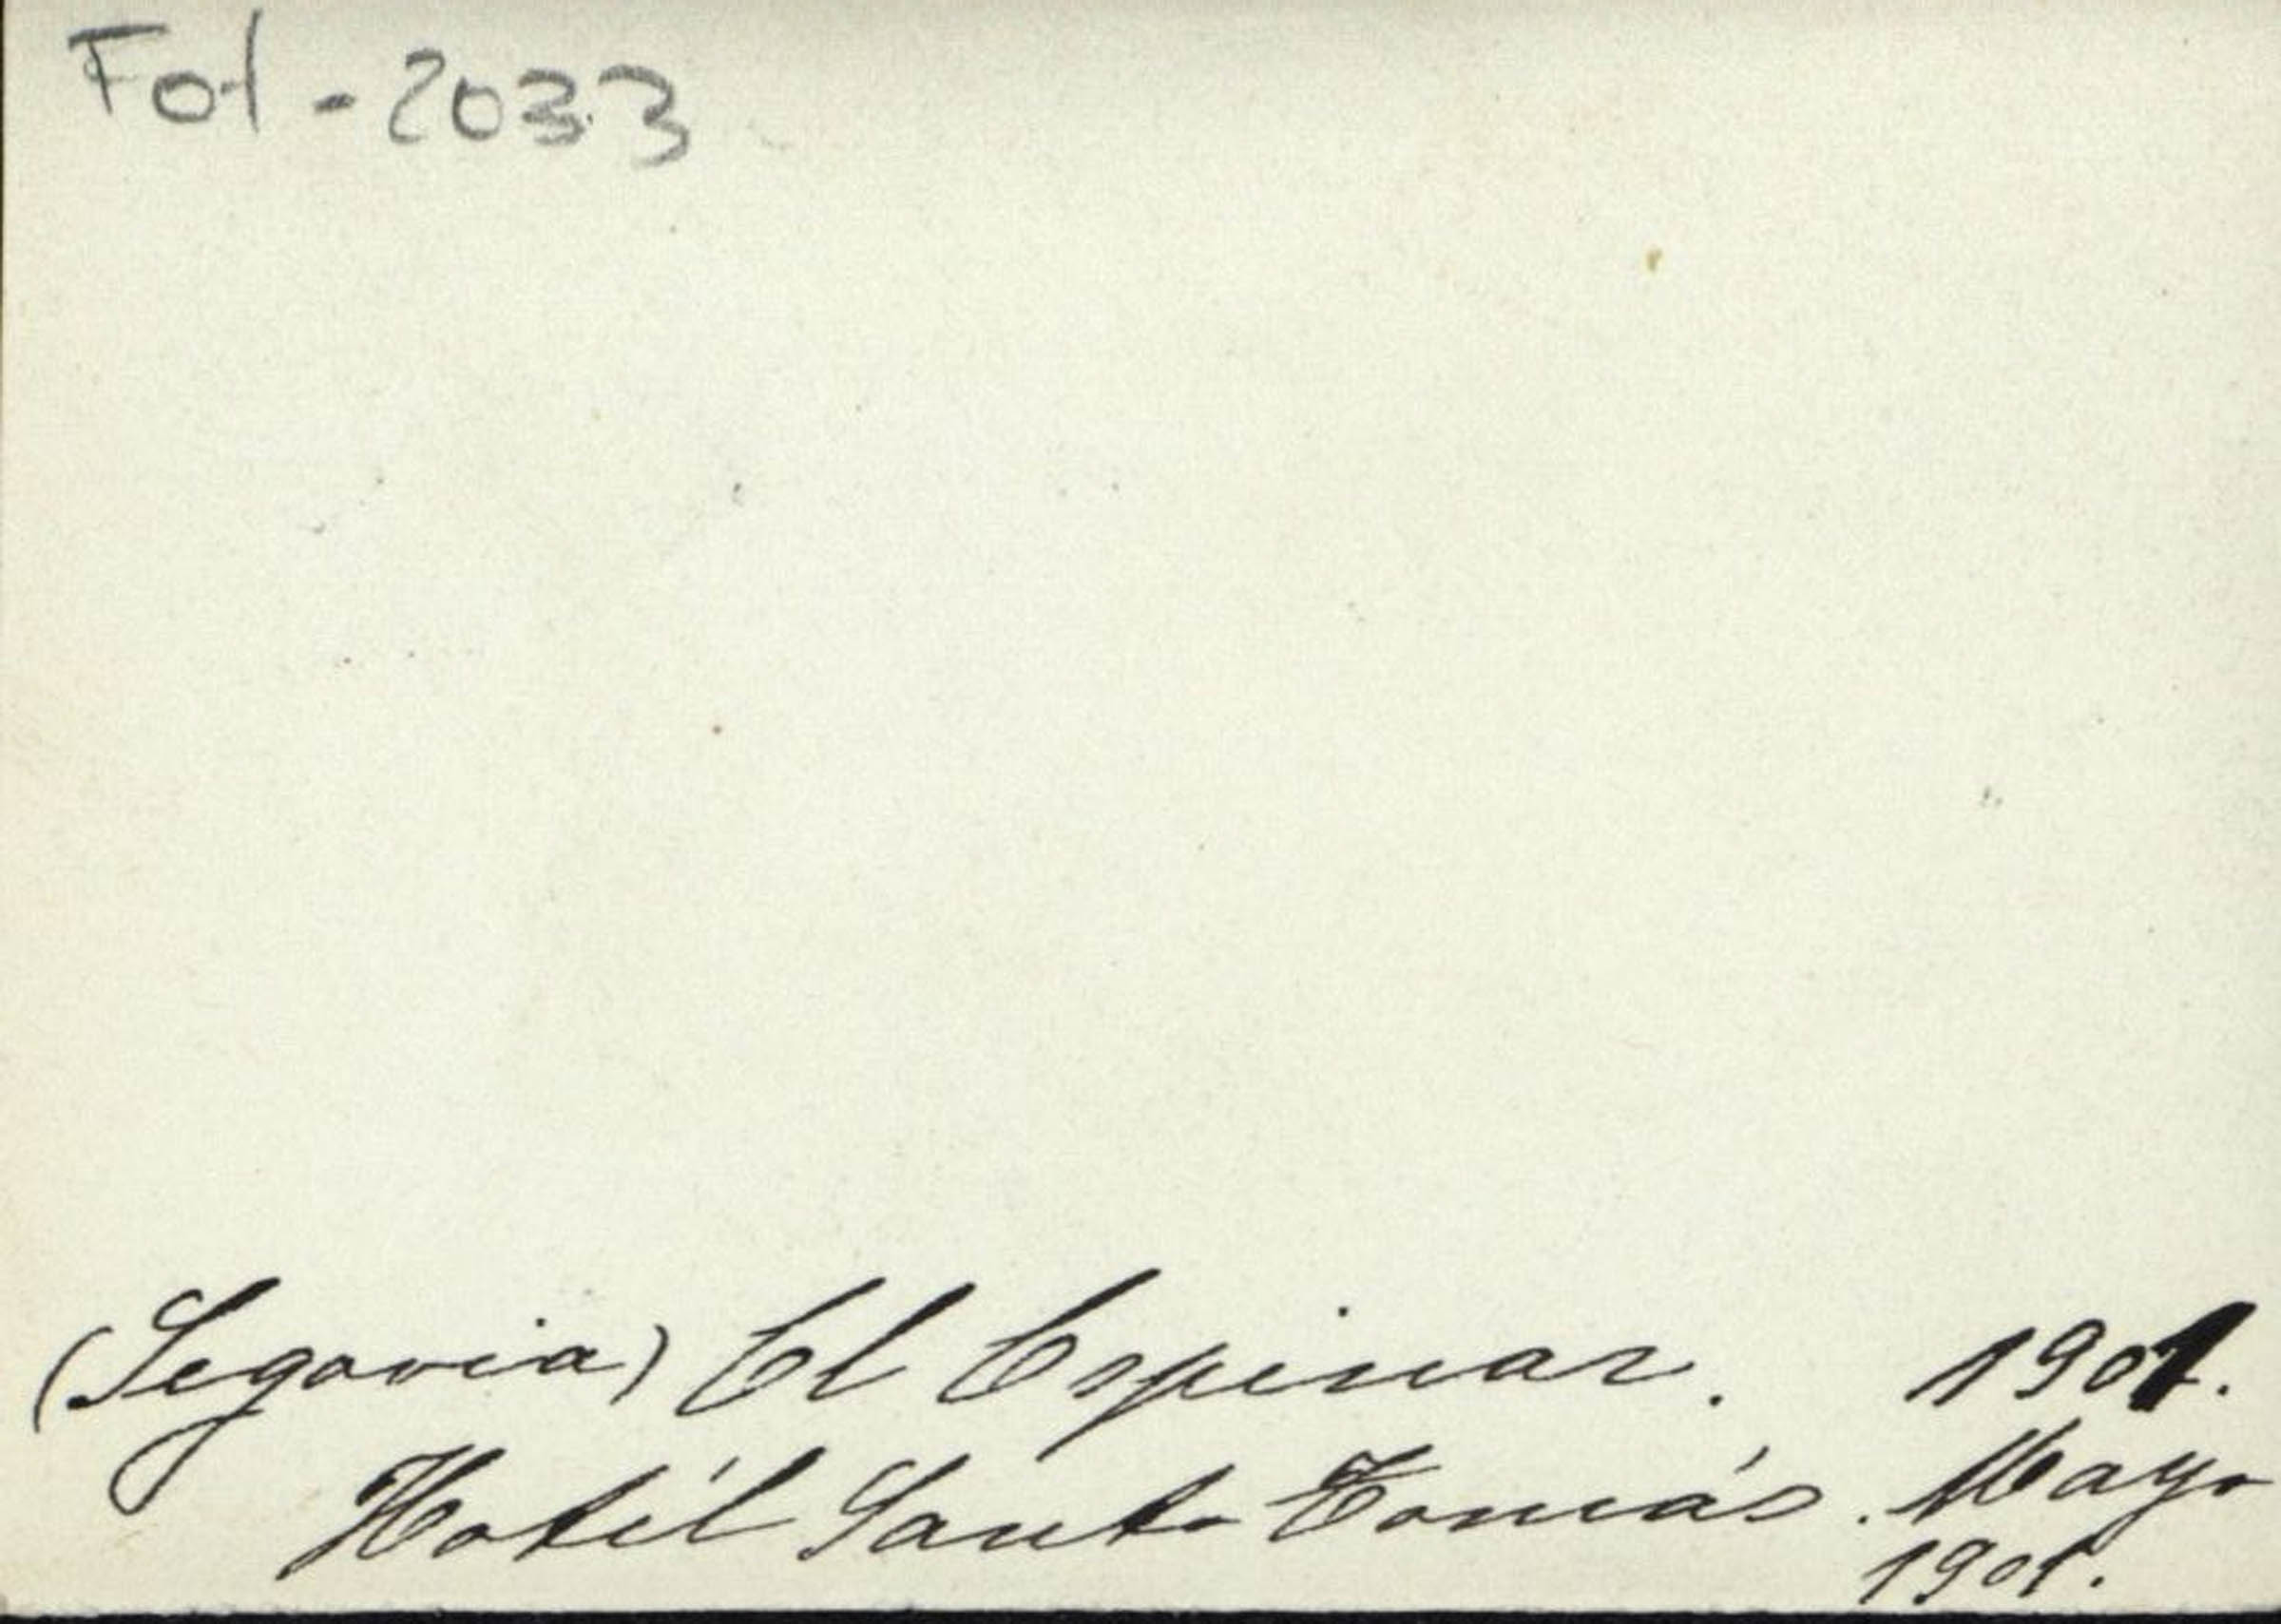 Fot-2033
(Segovia) El Espinar. 1901.
Hotél Santo Tomás. Mayo
1901.